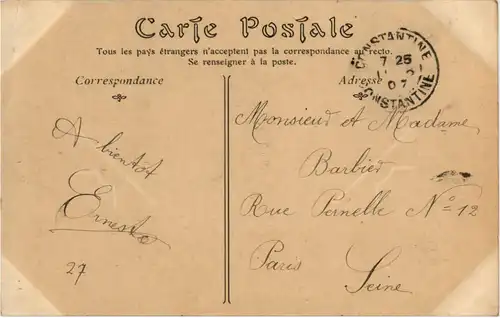 Carte Postale
Tous les pays étrangers n'acceptent pas la correspondance au recto.
Se renseigner à la poste.
Correspondance
Adresse
CONSTANTINE
7 25
07
CONSTANTINE
A bientôt
Ernest
27
Monsieur et Madame
Barbier
Rue Pernelle No 12
Paris
Seine